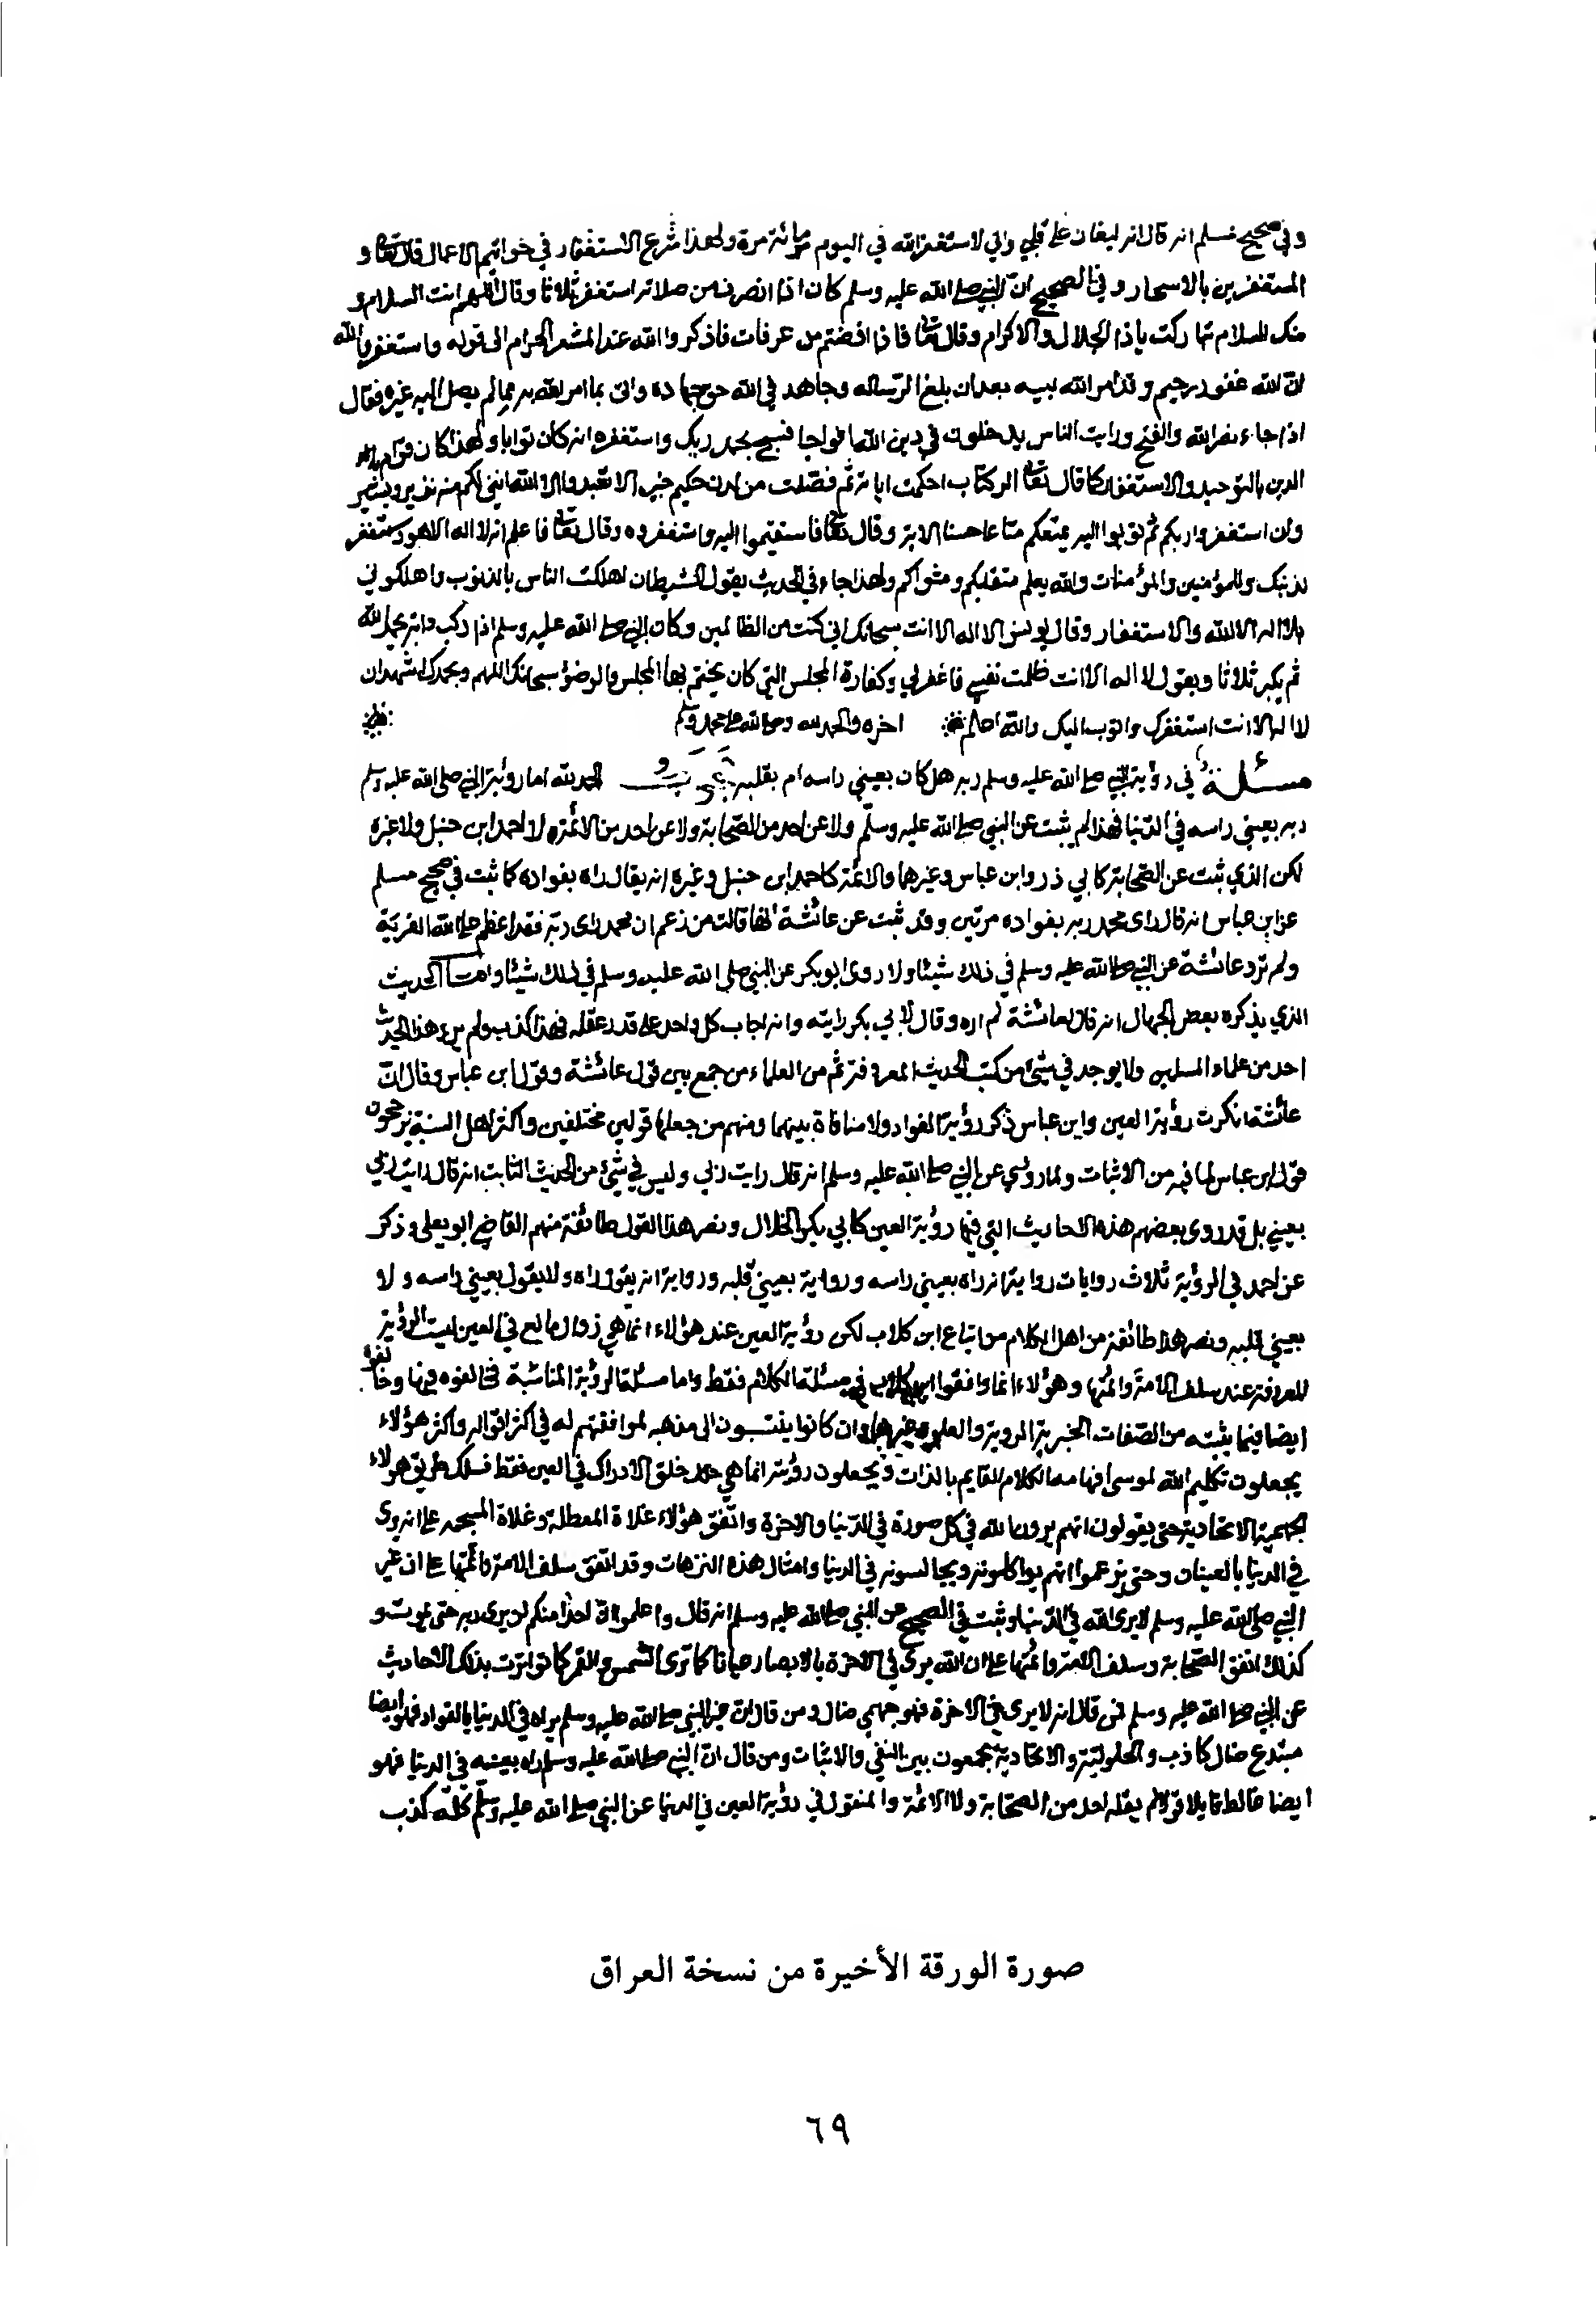 وفي صحيح مسلم انه قال انه ليغان على قلبي واني لاستغفر الله في اليوم مائة مرة ولهذا شرع الاستغفار في خواتيم الاعمال قال تعالى و
المستغفرين بالاسحار وفي الصحيح ان النبي صلى الله عليه وسلم كان اذا انصرف من صلاته استغفر ثلاثا وقال اللهم انت السلام و
منك السلام تباركت ياذا الجلال والاكرام وقال تعالى فاذا افضتم من عرفات فاذكروا الله عند المشعر الحرام الى قوله واستغفروا الله
ان الله غفور رحيم وقد امر الله نبيه بعد ان بلغ الرساله وجاهد في الله حق جهاده واتى بما امر الله به مما لم يصل اليه غيره فقال
اذا جاء نصر الله والفتح ورايت الناس يدخلون في دين الله افواجا فسبح بحمد ربك واستغفره انه كان توابا ولهذا كان قوام
الدين بالتوحيد والاستغفار كما قال تعالى الر كتاب احكمت اياته ثم فصلت من لدن حكيم خبير الا تعبدوا الا الله انني لكم منه نذير وبشير
وان استغفروا ربكم ثم توبوا اليه يمتعكم متاعا حسنا الاية وقال تعالى فاستقيموا اليه واستغفروه وقال تعالى فاعلم انه لا اله الا هو واستغفر
لذنبك وللمؤمنين والمؤمنات والله يعلم متقلبكم ومثواكم ولهذا جاء في الحديث يقول الشيطان اهلكت الناس بالذنوب واهلكوني
بلا اله الا الله والاستغفار وقال يونس لا اله الا انت سبحانك اني كنت من الظالمين وكان النبي صلى الله عليه وسلم اذا ركب دابته يحمد الله
ثم يكبر ثلاثا ويقول لا اله الا انت ظلمت نفسي فاغفر لي وكفارة المجلس التي كان يختم بها المجلس والوضؤ سبحانك اللهم وبحمدك اشهد ان
لا اله الا انت استغفرك واتوب اليك والله اعلم اخره والحمد لله وصلى الله على محمد وسلم
مسئلة في رؤية النبي صلى الله عليه وسلم ربه هل كان بعيني راسه ام بقلبه الحمد لله اما رؤية النبي صلى الله عليه وسلم
ربه بعيني راسه في الدنيا فهذا لم يثبت عن النبي صلى الله عليه وسلم ولا عن احد من الصحابة ولا عن احد من الائمة لا احمد ابن حنبل ولا غيره
لكن الذي ثبت عن الصحابة كابي ذر وابن عباس وغيرهما والائمة كاحمد ابن حنبل وغيره انه يقال راه بفواده كما ثبت في صحيح مسلم
عن ابن عباس انه قال راى محمد ربه بفواده مرتين وقد ثبت عن عائشة انها قالت من زعم ان محمد راى ربه فقد اعظم على الله الفرية
ولم ترو عائشة عن النبي صلى الله عليه وسلم في ذلك شيئا ولا روى ابو بكر عن النبي صلى الله عليه وسلم في ذلك شيئا واما الحديث
الذي يذكره بعض الجهال انه قال لعائشة لم اره وقال لابي بكر رايته وانه اجاب كل واحد على قدر عقله فهذا كذب ولم يرو هذا الحديث
احد من علماء المسلمين ولا يوجد في شئ من كتب الحديث المعروفة ثم من العلماء من جمع بين قول عائشة وقول ابن عباس وقال ان
عائشة انكرت رؤية العين وابن عباس ذكر رؤية الفواد ولا منافاة بينهما ومنهم من جعلها قولين مختلفين واكثر اهل السنة يرجحون
قول ابن عباس لما فيه من الاثبات ولما روي عن النبي صلى الله عليه وسلم انه قال رايت ربي وليس في شئ من الحديث الثابت انه قال رايت ربي
بعيني بل قد روى بعضهم هذه الاحاديث التي فيها رؤية العين كابي بكر الخلال ونصر هذا القول طائفة منهم القاضي ابو يعلى وذكر
عن احمد في الرؤية ثلاث روايات رواية انه راه بعيني راسه ورواية بعيني قلبه ورواية انه يقول راه ولا يقول بعيني راسه ولا
بعيني قلبه ونصر هذا طائفة من اهل الكلام من اتباع ابن كلاب لكن رؤية العين عند هؤلاء انما هي زوال مانع في العين ليست الرؤية
المعروفة عند سلف الامة وائمتها وهؤلاء انما وافقوا ابن كلاب في مسئلة الكلام فقط واما مسئلة الرؤية
ايضا فيما يثبته من الصفات الخبرية المروية والعلو وغيرها وان كانوا ينتسبون الى مذهبه لموافقتهم له في اكثر اقواله واكثر هؤلاء
يجعلون تكليم الله لموسى افهامه الكلام القايم بالذات ويجعلون رؤيته انما هي خلق الادراك في العين فقط فسلك طريق هولاء
الجهمية الاتحادية حتى يقولون انهم يرون الله في كل صورة في الدنيا والاخرة واتفق هؤلاء غلاة المعطلة وغلاة على انه يرى
في الدنيا بالعينان وحتى يزعموا انهم يواكلونه ويجالسونه في الدنيا وامثال هذه الترهات وقد اتفق سلف الامة وائمتها على ان غير
النبي صلى الله عليه وسلم لا يرى الله في الدنيا وثبت في الصحيح عن النبي صلى الله عليه وسلم انه قال واعلموا ان احدا منكم لن يرى ربه حتى يموت و
كذلك اتفق الصحابة وسلف الامة وائمتها على ان الله يرى في الاخرة بالابصار عيانا كما ترى الشمس والقمر كما تواترت بذلك الاحاديث
عن النبي صلى الله عليه وسلم فمن قال انه لا يرى في الاخرة فهو جهمي ضال ومن قال ان غير النبي صلى الله عليه وسلم يراه في الدنيا بالفواد فهو ايضا
مبتدع ضال كاذب والحلولية والاتحادية يجمعون بين النفي والاثبات ومن قال ان النبي صلى الله عليه وسلم راه بعينه في الدنيا فهو
ايضا غالط قايلا قولا لم يقله احد من الصحابة ولا الائمة والمنقول في رؤية العين في الدنيا عن النبي صلى الله عليه وسلم كله كذب
صورة الورقة الأخيرة من نسخة العراق
٦٩